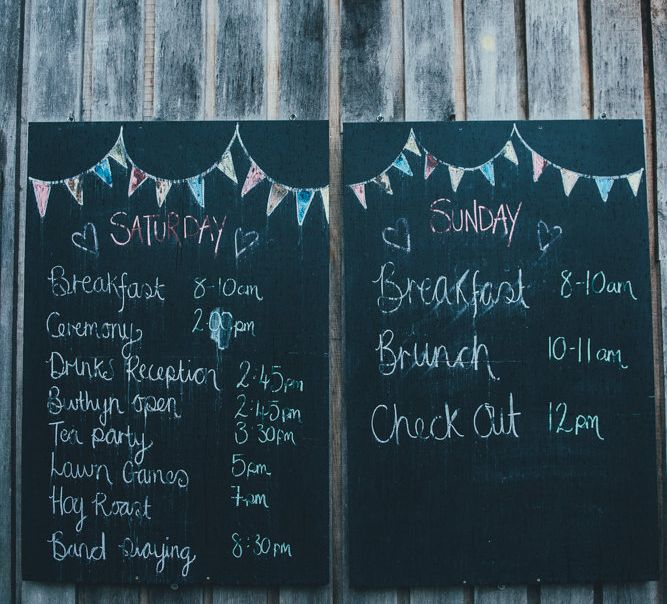 SATURDAY
Breakfast 8-10am
Ceremony 2:00pm
Drinks Reception 2:45pm
Bwthyn open 2:45pm
Tea party 3:30pm
Lawn Games 5pm
Hog Roast 7pm
Band playing 8:30pm
SUNDAY
Breakfast 8-10am
Brunch 10-11am
Check Out 12pm